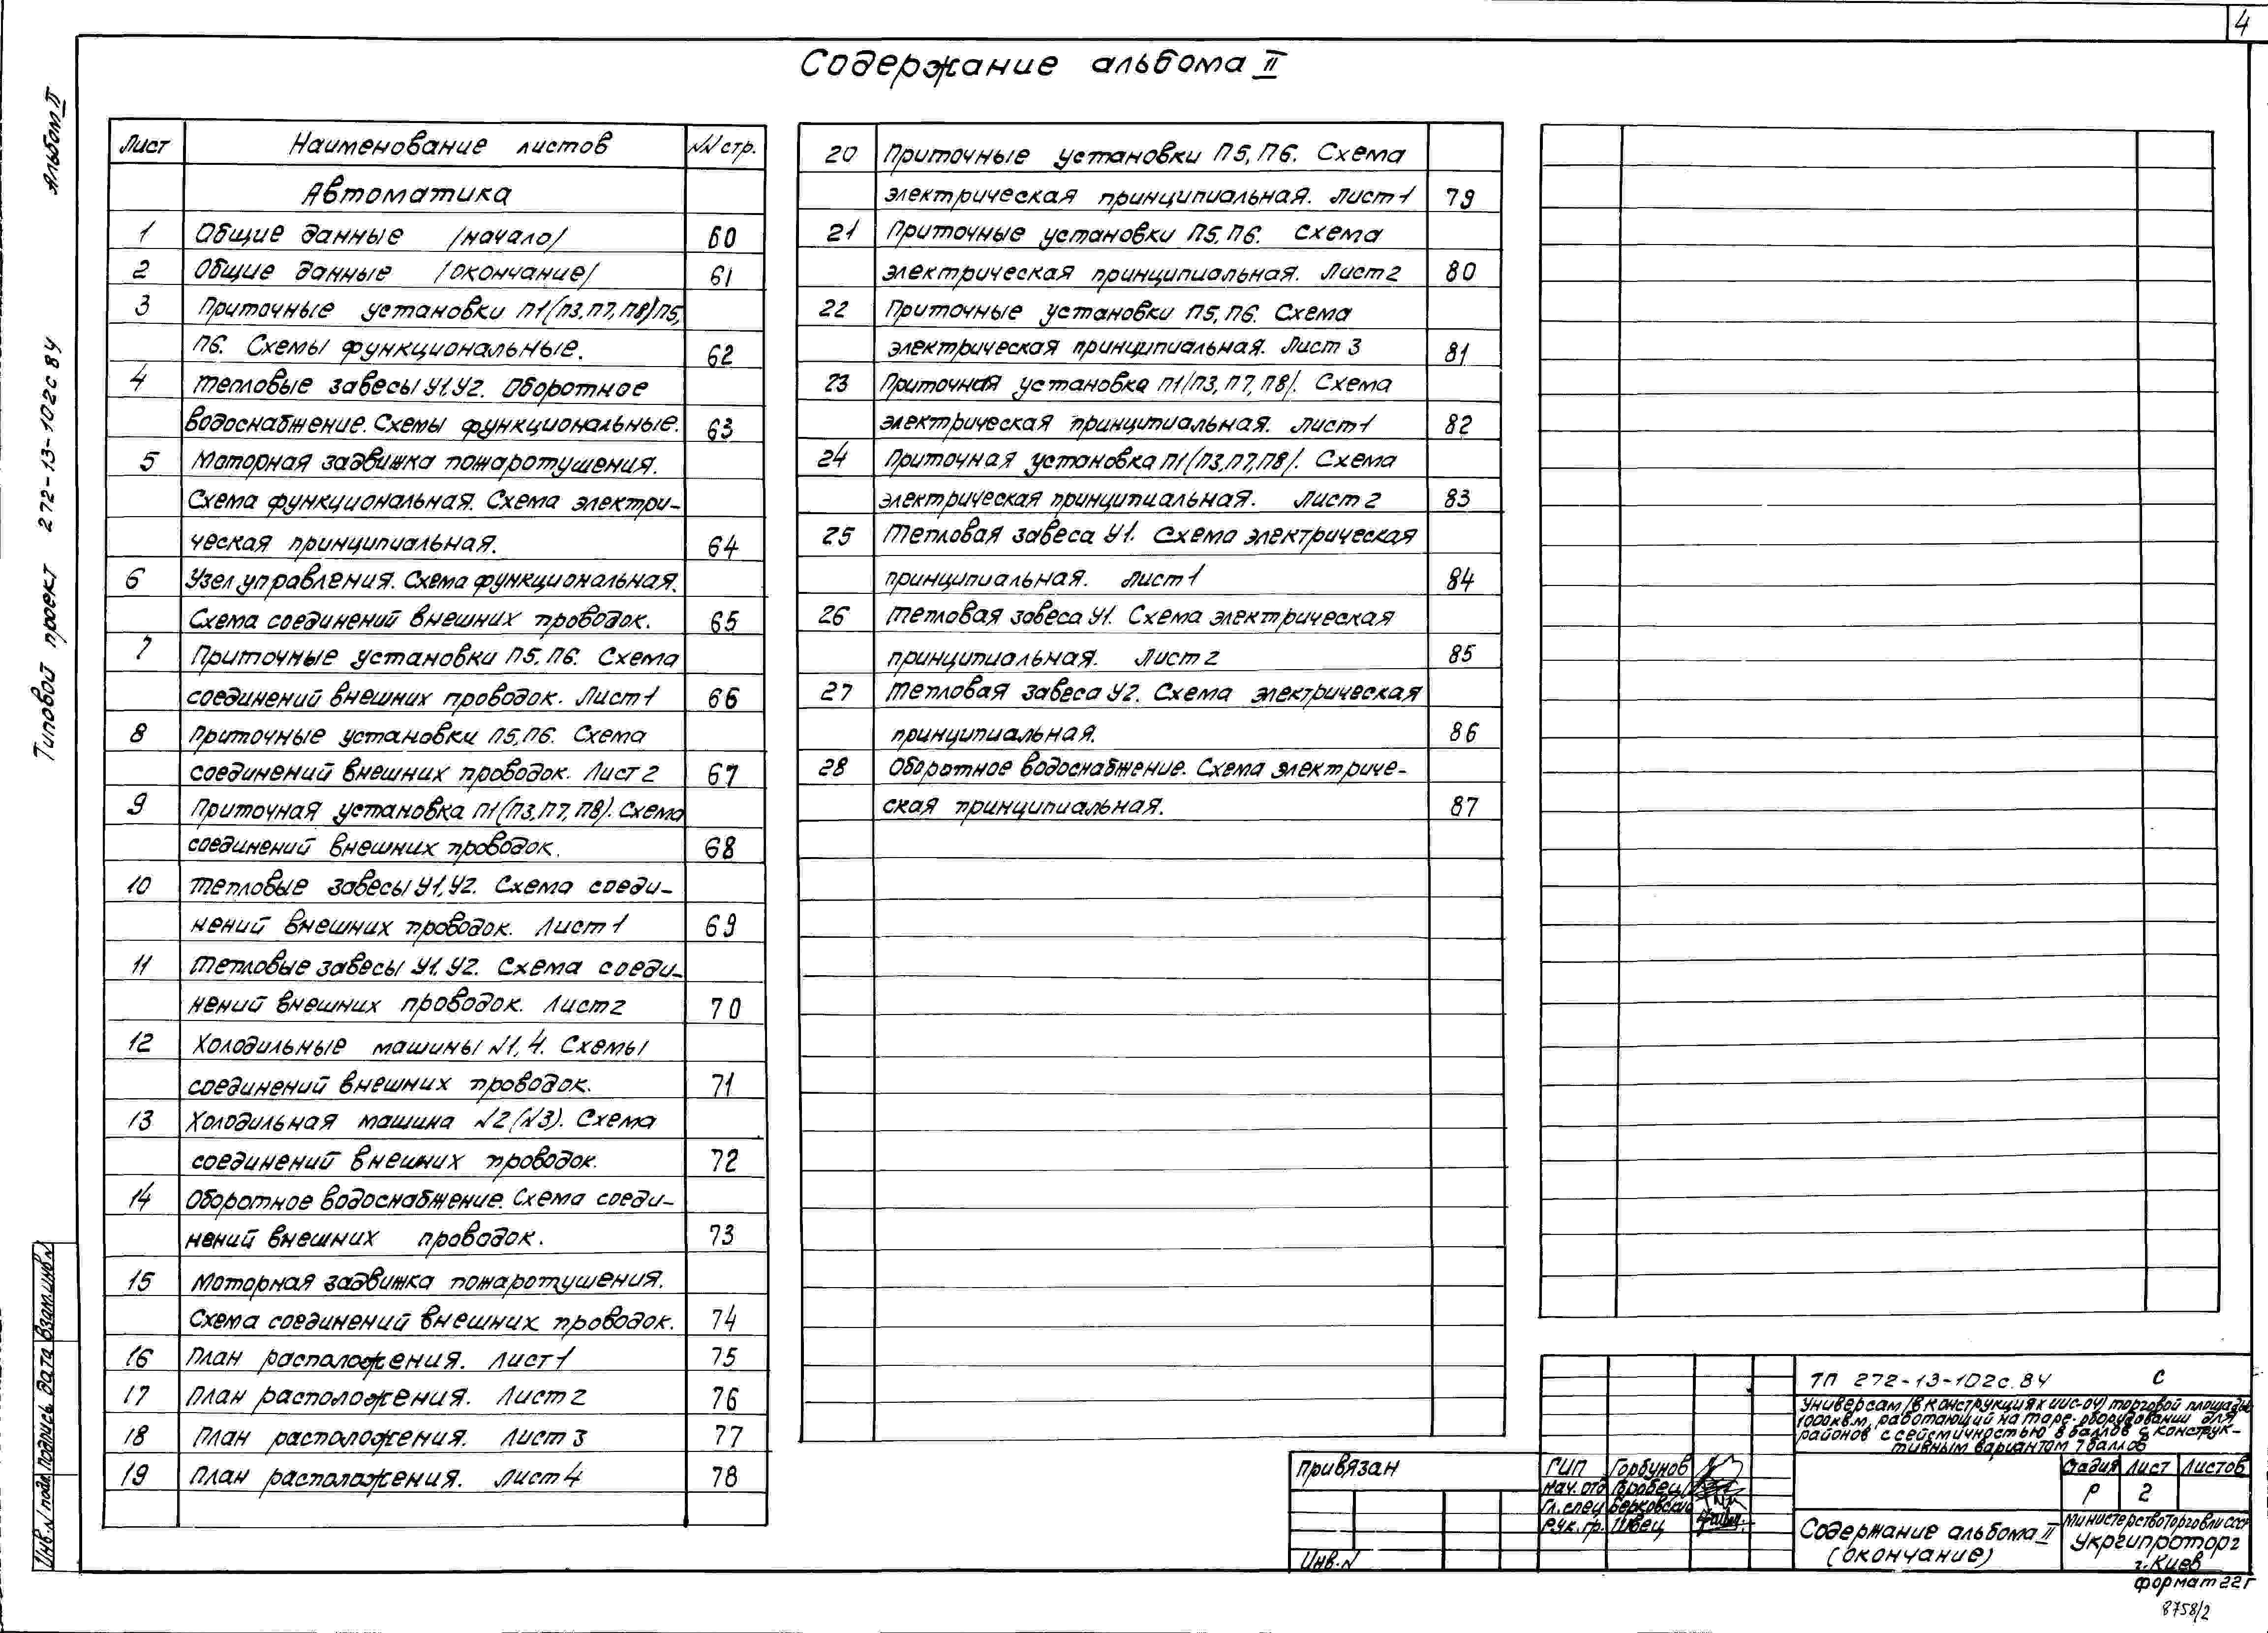 4
Содержание альбома II
Альбом II
Типовой проект 272-13-102с84
Лист Наименование листов NN стр.
Автоматика
1 Общие данные /начало/ 60
2 Общие данные /окончание/ 61
3 Приточные установки П1(П3,П7,П8)П5,
П6. Схемы функциональные. 62
4 Тепловые завесы У1,У2. Оборотное
водоснабжение. Схемы функциональные. 63
5 Моторная задвижка пожаротушения.
Схема функциональная. Схема электри-
ческая принципиальная. 64
6 Узел управления. Схема функциональная.
Схема соединений внешних проводок. 65
7 Приточные установки П5,П6. Схема
соединений внешних проводок. Лист 1 66
8 Приточные установки П5,П6. Схема
соединений внешних проводок. Лист 2 67
9 Приточная установка П1(П3,П7,П8). Схема
соединений внешних проводок. 68
10 Тепловые завесы У1,У2. Схема соеди-
нений внешних проводок. Лист 1 69
11 Тепловые завесы У1,У2. Схема соеди-
нений внешних проводок. Лист 2 70
12 Холодильные машины N1,4. Схемы
соединений внешних проводок. 71
13 Холодильная машина N2(N3). Схема
соединений внешних проводок. 72
14 Оборотное водоснабжение. Схема соеди-
нений внешних проводок. 73
15 Моторная задвижка пожаротушения.
Схема соединений внешних проводок. 74
16 План расположения. Лист 1 75
17 План расположения. Лист 2 76
18 План расположения. Лист 3 77
19 План расположения. Лист 4 78
20 Приточные установки П5,П6. Схема
электрическая принципиальная. Лист 1 79
21 Приточные установки П5,П6. Схема
электрическая принципиальная. Лист 2 80
22 Приточные установки П5,П6. Схема
электрическая принципиальная. Лист 3 81
23 Приточная установка П1/П3,П7,П8/. Схема
электрическая принципиальная. Лист 1 82
24 Приточная установка П1(П3,П7,П8/. Схема
электрическая принципиальная. Лист 2 83
25 Тепловая завеса У1. Схема электрическая
принципиальная. Лист 1 84
26 Тепловая завеса У1. Схема электрическая
принципиальная. Лист 2 85
27 Тепловая завеса У2. Схема электрическая
принципиальная. 86
28 Оборотное водоснабжение. Схема электриче-
ская принципиальная. 87
Инв.N подл. Подпись дата Взам.инв.N
Привязан
Инв.N
ГИП Горбунов
Нач.отд Воробец
Гл.спец Берковский
Рук.гр. Швец
ТП 272-13-102с.84 С
Универсам /в конструкциях ИИС-04/ торговой площадью
1000кв.м, работающий на таре-оборудовании для
районов с сейсмичностью 8 баллов с конструк-
тивным вариантом 7 баллов
Стадия Лист Листов
Р 2
Содержание альбома II
(окончание)
Министерство торговли СССР
Укргипроторг
г. Киев
формат 22Г
8758/2